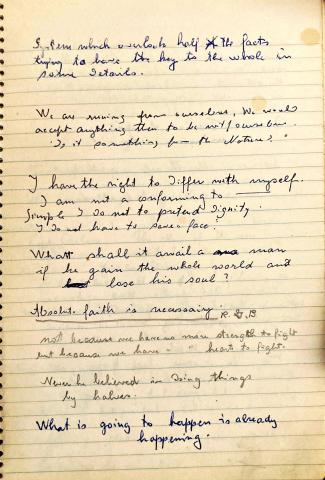 System which overlook half the facts
trying to have the key to the whole in
some details.
We are running from ourselves, We would
accept anything then to be with ourselves.
Is it something for the Nature?
I have the right to differ with myself.
I am not a conforming to
Simple I do not to pretend dignity.
I do not have to save face.
What shall it avail a man
if he gain the whole world and
lose his soul?
Absolute faith is necessary. R. G. B
not because we have no more strength to fight
but because we have " " hearts to fight.
Never he believed in doing things
by halves.
What is going to happen is already
happening.